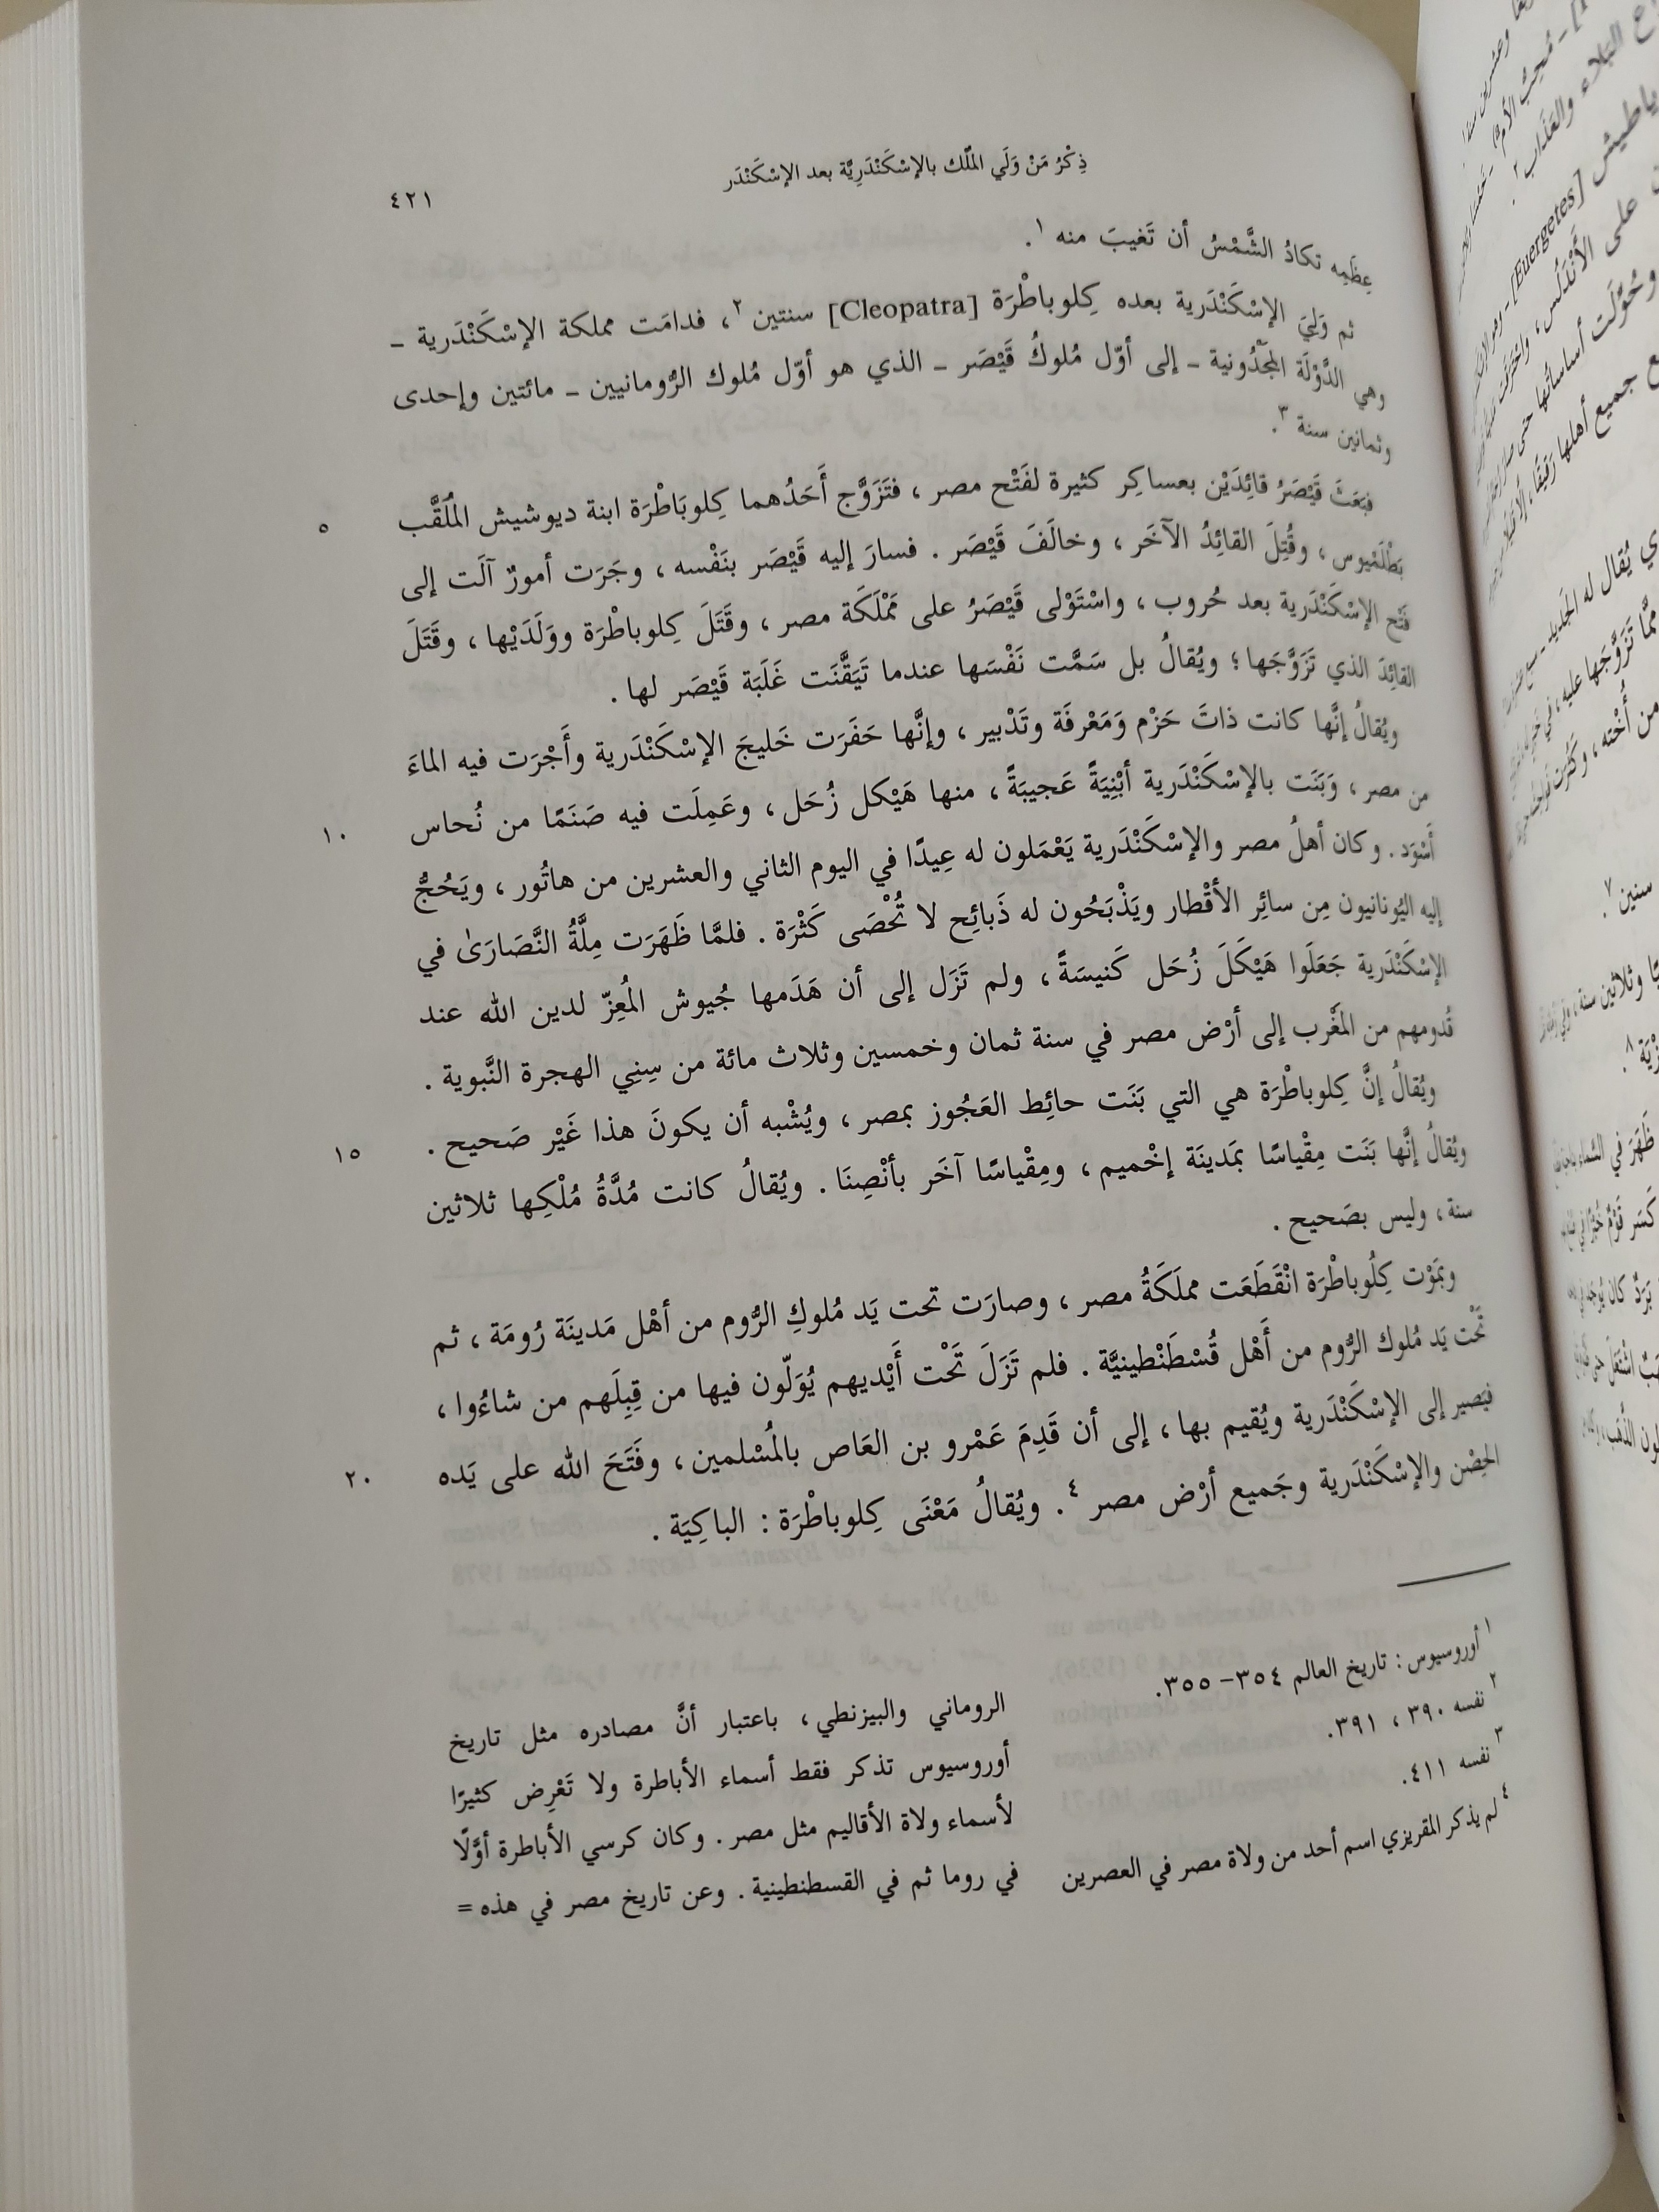 ذِكْرُ مَنْ وَلَي المُلْك بالإسْكَنْدَرِيَّة بعد الإسْكَنْدَر
٤٢١
عِظَمِه تكادُ الشَّمْسُ أن تَغيبَ منه ١.
ثم وَلِيَ الإسْكَنْدَرية بعده كِلوباطْرَة [Cleopatra] سنتين ٢، فدامَت مملكة الإسْكَنْدَرية ـ
وهي الدَّوْلَة المَجْدُونية ـ إلى أوّل مُلوكُ قَيْصَر ـ الذي هو أوّل مُلوك الرُّومانيين ـ مائتين وإحدى
وثمانين سنة ٣.
فبَعَثَ قَيْصَرُ قائِدَيْن بعساكِر كثيرة لفَتْح مصر ، فتَزَوَّج أَحَدُهما كِلوبَاطْرَة ابنة ديوشيش المُلَقَّب
٥
بَطْلَمْيوس ، وقُتِلَ القائِدُ الآخَر ، وخالَفَ قَيْصَر . فسارَ إليه قَيْصَر بنَفْسه ، وجَرَت أمورٌ آلَت إلى
فَتْح الإسْكَنْدَرية بعد حُروب ، واسْتَوْلى قَيْصَرُ على مَمْلَكَة مصر ، وقَتَلَ كِلوباطْرَة ووَلَدَيْها ، وقَتَلَ
القائِدَ الذي تَزَوَّجَها ؛ ويُقالُ بل سَمَّت نَفْسَها عندما تَيَقَّنَت غَلَبَة قَيْصَر لها .
ويُقالُ إنَّها كانت ذاتَ حَزْم وَمَعْرفَة وتَدْبير ، وإنَّها حَفَرَت خَليجَ الإسْكَنْدَرية وأَجْرَت فيه الماءَ
من مصر ، وَبَنَت بالإسْكَنْدَرية أبْنِيَةً عَجيبَةً ، منها هَيْكل زُحَل ، وعَمِلَت فيه صَنَمًا من نُحاس
١٠
أَسْوَد . وكان أهلُ مصر والإسْكَنْدَرية يَعْمَلون له عِيدًا في اليوم الثاني والعشرين من هاتُور ، ويَحُجُّ
إليه اليُونانيون مِن سائِر الأقْطار ويَذْبَحُون له ذَبائِح لا تُحْصَى كَثْرَة . فلمَّا ظَهَرَت مِلَّةُ النَّصَارَىٰ في
الإسْكَنْدَرية جَعَلَوا هَيْكَلَ زُحَل كَنيسَةً ، ولم تَزَل إلى أن هَدَمها جُيوش المُعِزّ لدين الله عند
قُدومهم من المَغْرب إلى أرْض مصر في سنة ثمان وخمسين وثلاث مائة من سِنِي الهجرة النَّبوية .
ويُقالُ إنَّ كِلوباطْرَة هي التي بَنَت حائِط العَجُوز بمصر ، ويُشْبه أن يكونَ هذا غَيْر صَحيح .
١٥
ويُقالُ إنَّها بَنَت مِقْياسًا بمَدينَة إخْميم ، ومِقْياسًا آخَر بأنْصِنَا . ويُقالُ كانت مُدَّةُ مُلْكِها ثلاثين
سنة ، وليس بصَحيح .
وبمَوْت كِلُوباطْرَة انْقَطَعَت مملَكَةُ مصر ، وصارَت تحت يَد مُلوكِ الرُّوم من أهْل مَدينَة رُومَة ، ثم
تَحْت يَد مُلوك الرُّوم من أَهْل قُسْطَنْطينيَّة . فلم تَزَلَ تَحْت أَيْديهم يُوَلّون فيها من قِبِلَهم من شاءُوا ،
فيَصير إلى الإسْكَنْدَرية ويُقيم بها ، إلى أن قَدِمَ عَمْرو بن العَاص بالمُسْلمين ، وفَتَحَ الله على يَده
٢٠
الحِصْن والإسْكَنْدَرية وجَميع أرْض مصر ٤. ويُقالُ مَعْنَى كِلوباطْرَة : الباكِيَة .
١ أوروسيوس : تاريخ العالم ٣٥٤– ٣٥٥.
٢ نفسه ٣٩٠ ، ٣٩١.
٣ نفسه ٤١١.
٤ لم يذكر المقريزي اسم أحد من ولاة مصر في العصرين
الروماني والبيزنطي ، باعتبار أنَّ مصادره مثل تاريخ
أوروسيوس تذكر فقط أسماء الأباطرة ولا تَعْرِض كثيرًا
لأسماء ولاة الأقاليم مثل مصر . وكان كرسي الأباطرة أوَّلًا
في روما ثم في القسطنطينية . وعن تاريخ مصر في هذه =